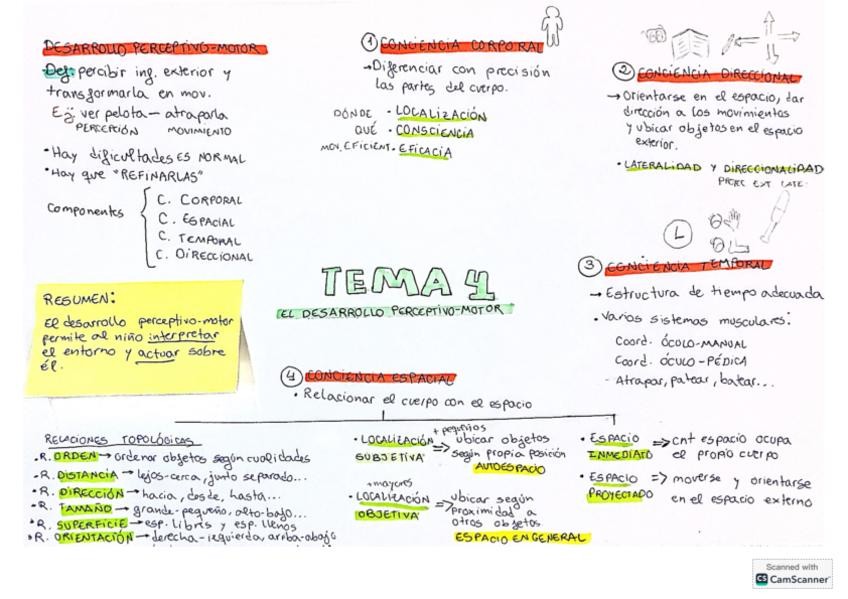 DESARROLLO PERCEPTIVO-MOTOR
- Def: percibir inf. exterior y
transformarla en mov.
Ej: ver pelota — atraparla
PERCEPCIÓN MOVIMIENTO
• Hay dificultades ES NORMAL
• Hay que "REFINARLAS"
Componentes
C. CORPORAL
C. ESPACIAL
C. TEMPORAL
C. DIRECCIONAL
① CONCIENCIA CORPORAL
→ Diferenciar con precisión
las partes del cuerpo.
DÓNDE • LOCALIZACIÓN
QUÉ • CONSCIENCIA
MOV. EFICIENT. • EFICACIA
② CONCIENCIA DIRECCIONAL
→ Orientarse en el espacio, dar
dirección a los movimientos
y ubicar objetos en el espacio
exterior.
• LATERALIDAD y DIRECCIONALIDAD
EXT LATE.
L
③ CONCIENCIA TEMPORAL
→ Estructura de tiempo adecuada
• Varios sistemas musculares:
Coord. ÓCOLO-MANUAL
Coord. ÓCULO-PÉDICA
- Atrapar, patear, batear...
TEMA 4
EL DESARROLLO PERCEPTIVO-MOTOR
RESUMEN:
El desarrollo perceptivo-motor
permite al niño interpretar
el entorno y actuar sobre
él.
④ CONCIENCIA ESPACIAL
• Relacionar el cuerpo con el espacio
RELACIONES TOPOLÓGICAS
• R. ORDEN → ordenar objetos según cualidades
• R. DISTANCIA → lejos-cerca, junto separado...
• R. DIRECCIÓN → hacia, desde, hasta...
• R. TAMAÑO → grande-pequeño, alto-bajo...
• R. SUPERFICIE → esp. libres y esp. llenos
• R. ORIENTACIÓN → derecha-izquierda, arriba-abajo
+ pequeños
• LOCALIZACIÓN SUBJETIVA => ubicar objetos
según propia posición
AUTOESPACIO
+ mayores
• LOCALIZACIÓN OBJETIVA => ubicar según
proximidad a
otros objetos
ESPACIO EN GENERAL
• ESPACIO INMEDIATO => cnt espacio ocupa
el propio cuerpo
• ESPACIO PROYECTADO => moverse y orientarse
en el espacio externo
Scanned with
CS CamScanner